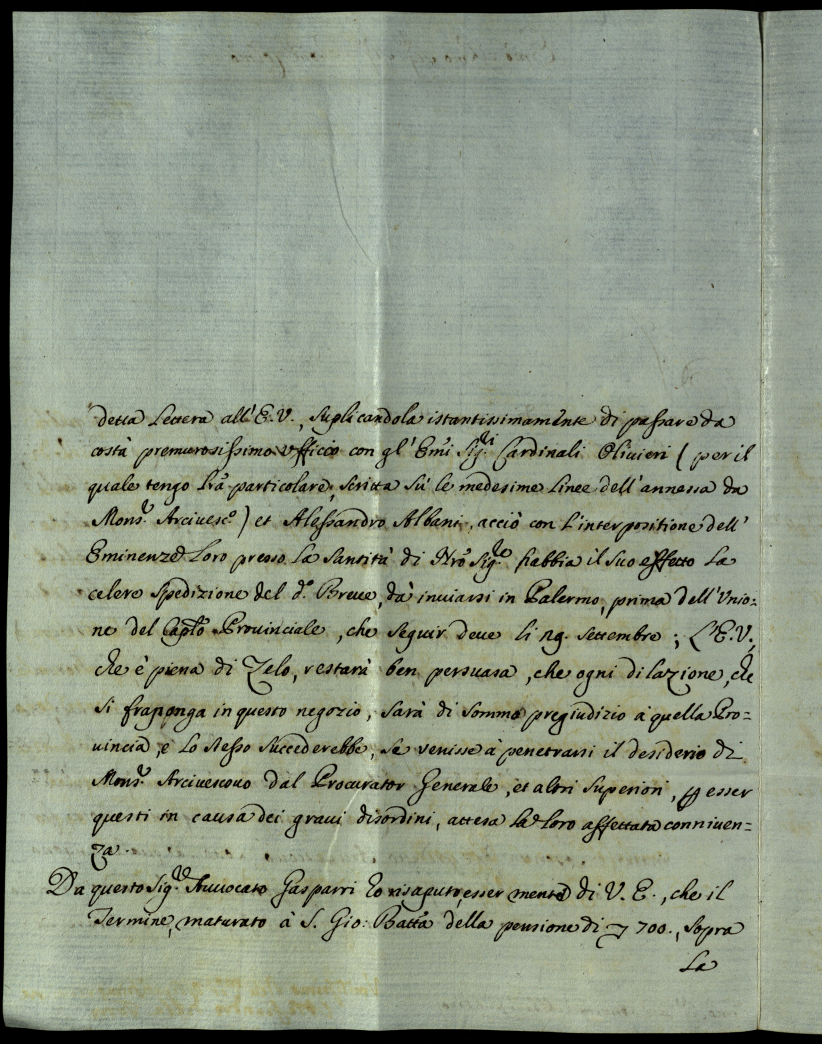 detta Lettera all'E.V., suplicandola istantissimamente di passare da
costà premurosissimo ufficio con gl'Emi Sig.ri Cardinali Olivieri (per il
quale tengo Lra particolare, scritta sù le medesime Linee dell'annessa da
Mons.r Arcivesc.o) et Alessandro Albani, acciò con L'interpositione dell'
Eminenze Loro presso La Santità di Nro Sig.re habbia il suo effetto La
celere Spedizione del d.o Breve, dà inviarsi in Palermo, prima dell'Unio=
ne del Capto Provinciale, che seguir deve li 29. Settembre; L'E.V.,
che è piena di Zelo, restarà ben persuasa, che ogni dilazione, che
si fraponga in questo negozio, sarà di sommo pregiudizio à quella Pro=
vincia, e Lo stesso succederebbe, se venisse à penetrarsi il desiderio di
Mons.r Arcivescovo dal Procurator Generale, et altri Superiori, p esser
questi in causa dei gravi disordini, attesa La Loro affettata conniven=
za.
Da questo Sig.r Avvocato Gasparri hò risaputo, esser mente di V. E., che il
Termine, maturato à S. Gio: Batta della pensione di 700., sopra
La